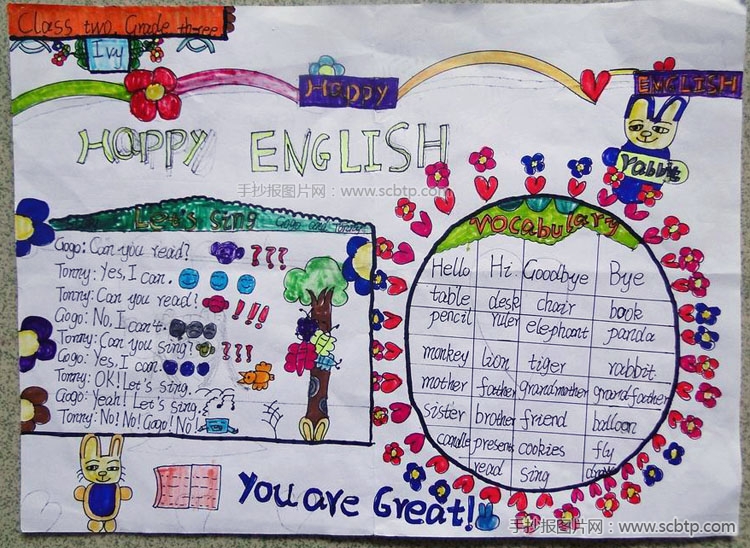 Class two. Grade three
Ivy
Happy
ENGLISH
HAPPY ENGLISH
rabbit
手抄报图片网：www.scbtp.com
Let's Sing Gogo and Tommy
Gogo: Can you read? ???
Tonny: Yes, I can.
Tonny: Can you read! !!!
Gogo: No, I can't.
Tonny: Can you sing? ???
Gogo: Yes, I can
Tonny: OK! Let's sing.
Gogo: Yeah! Let's sing.
Tonny: No! No! Gogo! No!
Vocabulary
Hello Hi Goodbye Bye
table desk chair book
pencil ruler elephant panda
monkey lion tiger rabbit
mother father grandmother grandfather
sister brother friend balloon
candle present cookies fly
read sing
You are Great!
手抄报图片网：www.scbtp.com